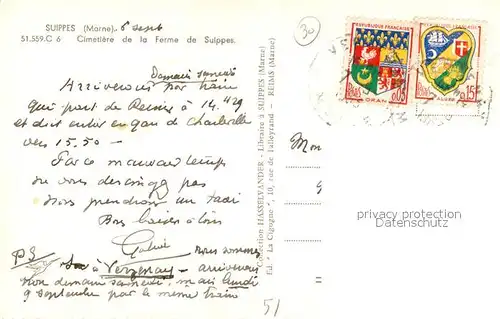 SUIPPES (Marne). 6 sept
51.559.C 6 Cimetière de la Ferme de Suippes.
Demain samedi
Arriverons par train
qui part de Reims à 14.29
et doit entrer en gare de Charleville
vers 15.50 —
Par ce mauvais temps
ne vous dérangez pas
nous prendrons un taxi
Bons baisers à tous
PS nous sommes
à Verzenay — arriverons
non demain samedi, mais lundi
9 septembre par le même train
51
30
Collection HASSELVANDER - Libraire à SUIPPES (Marne)
Ed. "La Cigogne", 10, rue de Talleyrand - REIMS (Marne)
REPUBLIQUE FRANÇAISE
POSTES
ORAN
0,05
ALGER
0,15
Mon
privacy protection
Datenschutz